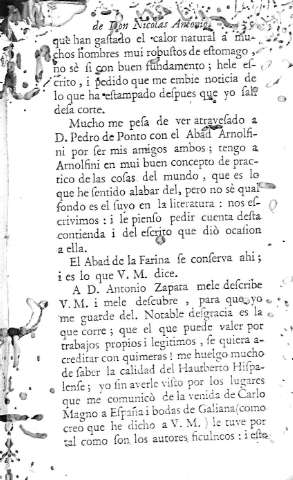 de Don Nicolas Antonio.
que han gastado el calor natural a mu-
chos hombres mui robustos de estomago,
no sè si con buen fundamento; hele es-
crito, i pedido que me embie noticia de
lo que ha estampado despues que yo sali
desa corte.
Mucho me pesa de ver atravesado a
D. Pedro de Ponto con el Abad Arnolfi-
ni por ser mis amigos ambos; tengo a
Arnolfini en mui buen concepto de prac-
tico de las cosas del mundo, que es lo
que he sentido alabar del, pero no sè qual
fondo es el suyo en la literatura: nos es-
crivimos: i le pienso pedir cuenta desta
contienda i del escrito que diò ocasion
a ella.
El Abad de la Farina se conserva ahi;
i es lo que V. M. dice.
A D. Antonio Zapata mele describe
V. M. i mele descubre, para que yo
me guarde del. Notable desgracia es la
que corre; que el que puede valer por
trabajos propios i legitimos, se quiera a-
creditar con quimeras! me huelgo mucho
de saber la calidad del Hautberto Hispa-
lense; yo sin averle visto por los lugares
que me comunicò de la venida de Carlo
Magno a España i bodas de Galiana (como
creo que he dicho a V. M.) le tuve por
tal como son los autores ficulneos: i este